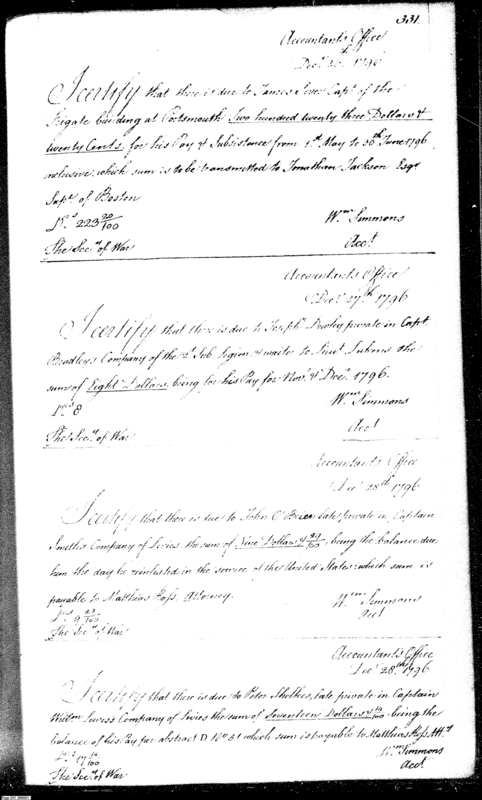 331.
Accountant's Office
Decr 26th 1796
I certify that there is due to James Sever Capt of the
frigate building at Portsmouth Two hundred twenty three Dollars &
twenty Cents, for his Pay & Subsistence from 1st May to 30th June 1796
inclusive, which sum is to be transmitted to Jonathan Jackson Esqr
Supr of Boston
Drs 223 20/100
Wm Simmons
Acct
The Secy of War
Accountants Office
Decr 27th 1796
I certify that there is due to Joseph private in Capt
Bradley's Company of the 2d Sub Legion & waiter to Lieut Lukens the
sum of Eight Dollars, being for his Pay for Nov. & Decr 1796.
Drs 8
Wm Simmons
Acct
The Secy of War
Accountants Office
Decr 28th 1796
I certify that there is due to John O'Brien late private in Captain
Smith's Company of Levies, the sum of Nine Dollars & 20/100, being the balance due
him the day he reinlisted in the service of the United States: which sum is
payable to Matthias Attorney.
Drs 9 20/100
Wm Simmons
Acct
The Secy of War
Accountants Office
Decr 28th 1796
I certify that there is due to Peter late private in Captain
Company of Levies the sum of Seventeen Dollars & being the
balance of his Pay for abstract D No 51 which sum is payable to Matthias
Wm Simmons
Acct
The Secy of War